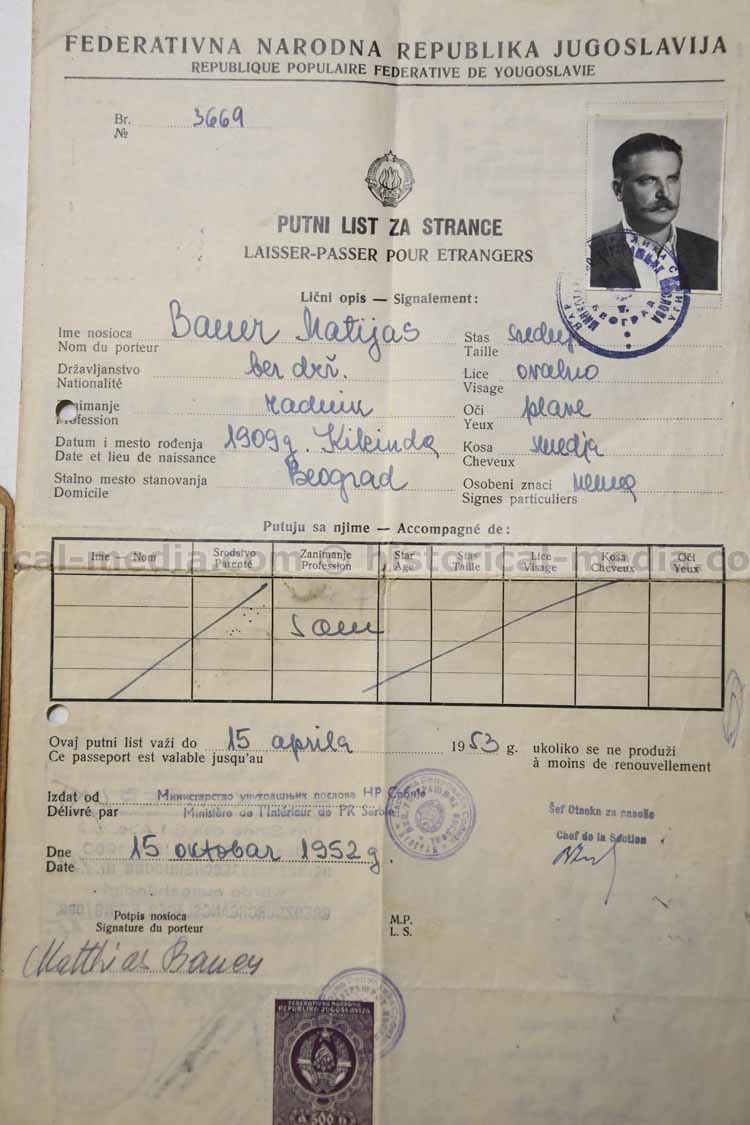 FEDERATIVNA NARODNA REPUBLIKA JUGOSLAVIJA
REPUBLIQUE POPULAIRE FEDERATIVE DE YOUGOSLAVIE
Br. 3669
№
PUTNI LIST ZA STRANCE
LAISSER-PASSER POUR ETRANGERS
Lični opis — Signalement:
Ime nosioca Bauer Matijas
Nom du porteur
Stas srednj
Taille
Državljanstvo bez drž.
Nationalité
Lice ovalno
Visage
Zanimanje radnik
Profession
Oči plave
Yeux
Datum i mesto rođenja 1909 g. Kikinda
Date et lieu de naissance
Kosa smeđa
Cheveux
Stalno mesto stanovanja Beograd
Domicile
Osobeni znaci nema
Signes particuliers
Putuju sa njime — Accompagné de:
Ime — Nom Srodstvo Zanimanje Star Stas Lice Kosa Oči
Parenté Profession Age Taille Visage Cheveux Yeux
historical-media.com © historical-media.co
Sam
Ovaj putni list važi do 15 aprila 1953 g. ukoliko se ne produži
Ce passeport est valable jusqu'au à moins de renouvellement
Izdat od Министарство унутрашњих послова НР Србије
Délivré par Ministère de l'Intérieur de PR Serbie
Šef Otseka za pasoše
Chef de la Section
Dne 15 oktobar 1952 g.
Date
Potpis nosioca
Signature du porteur
M.P.
L. S.
Matthias Bauer
FEDERATIVNA NARODNA
REPUBLIKA JUGOSLAVIJA